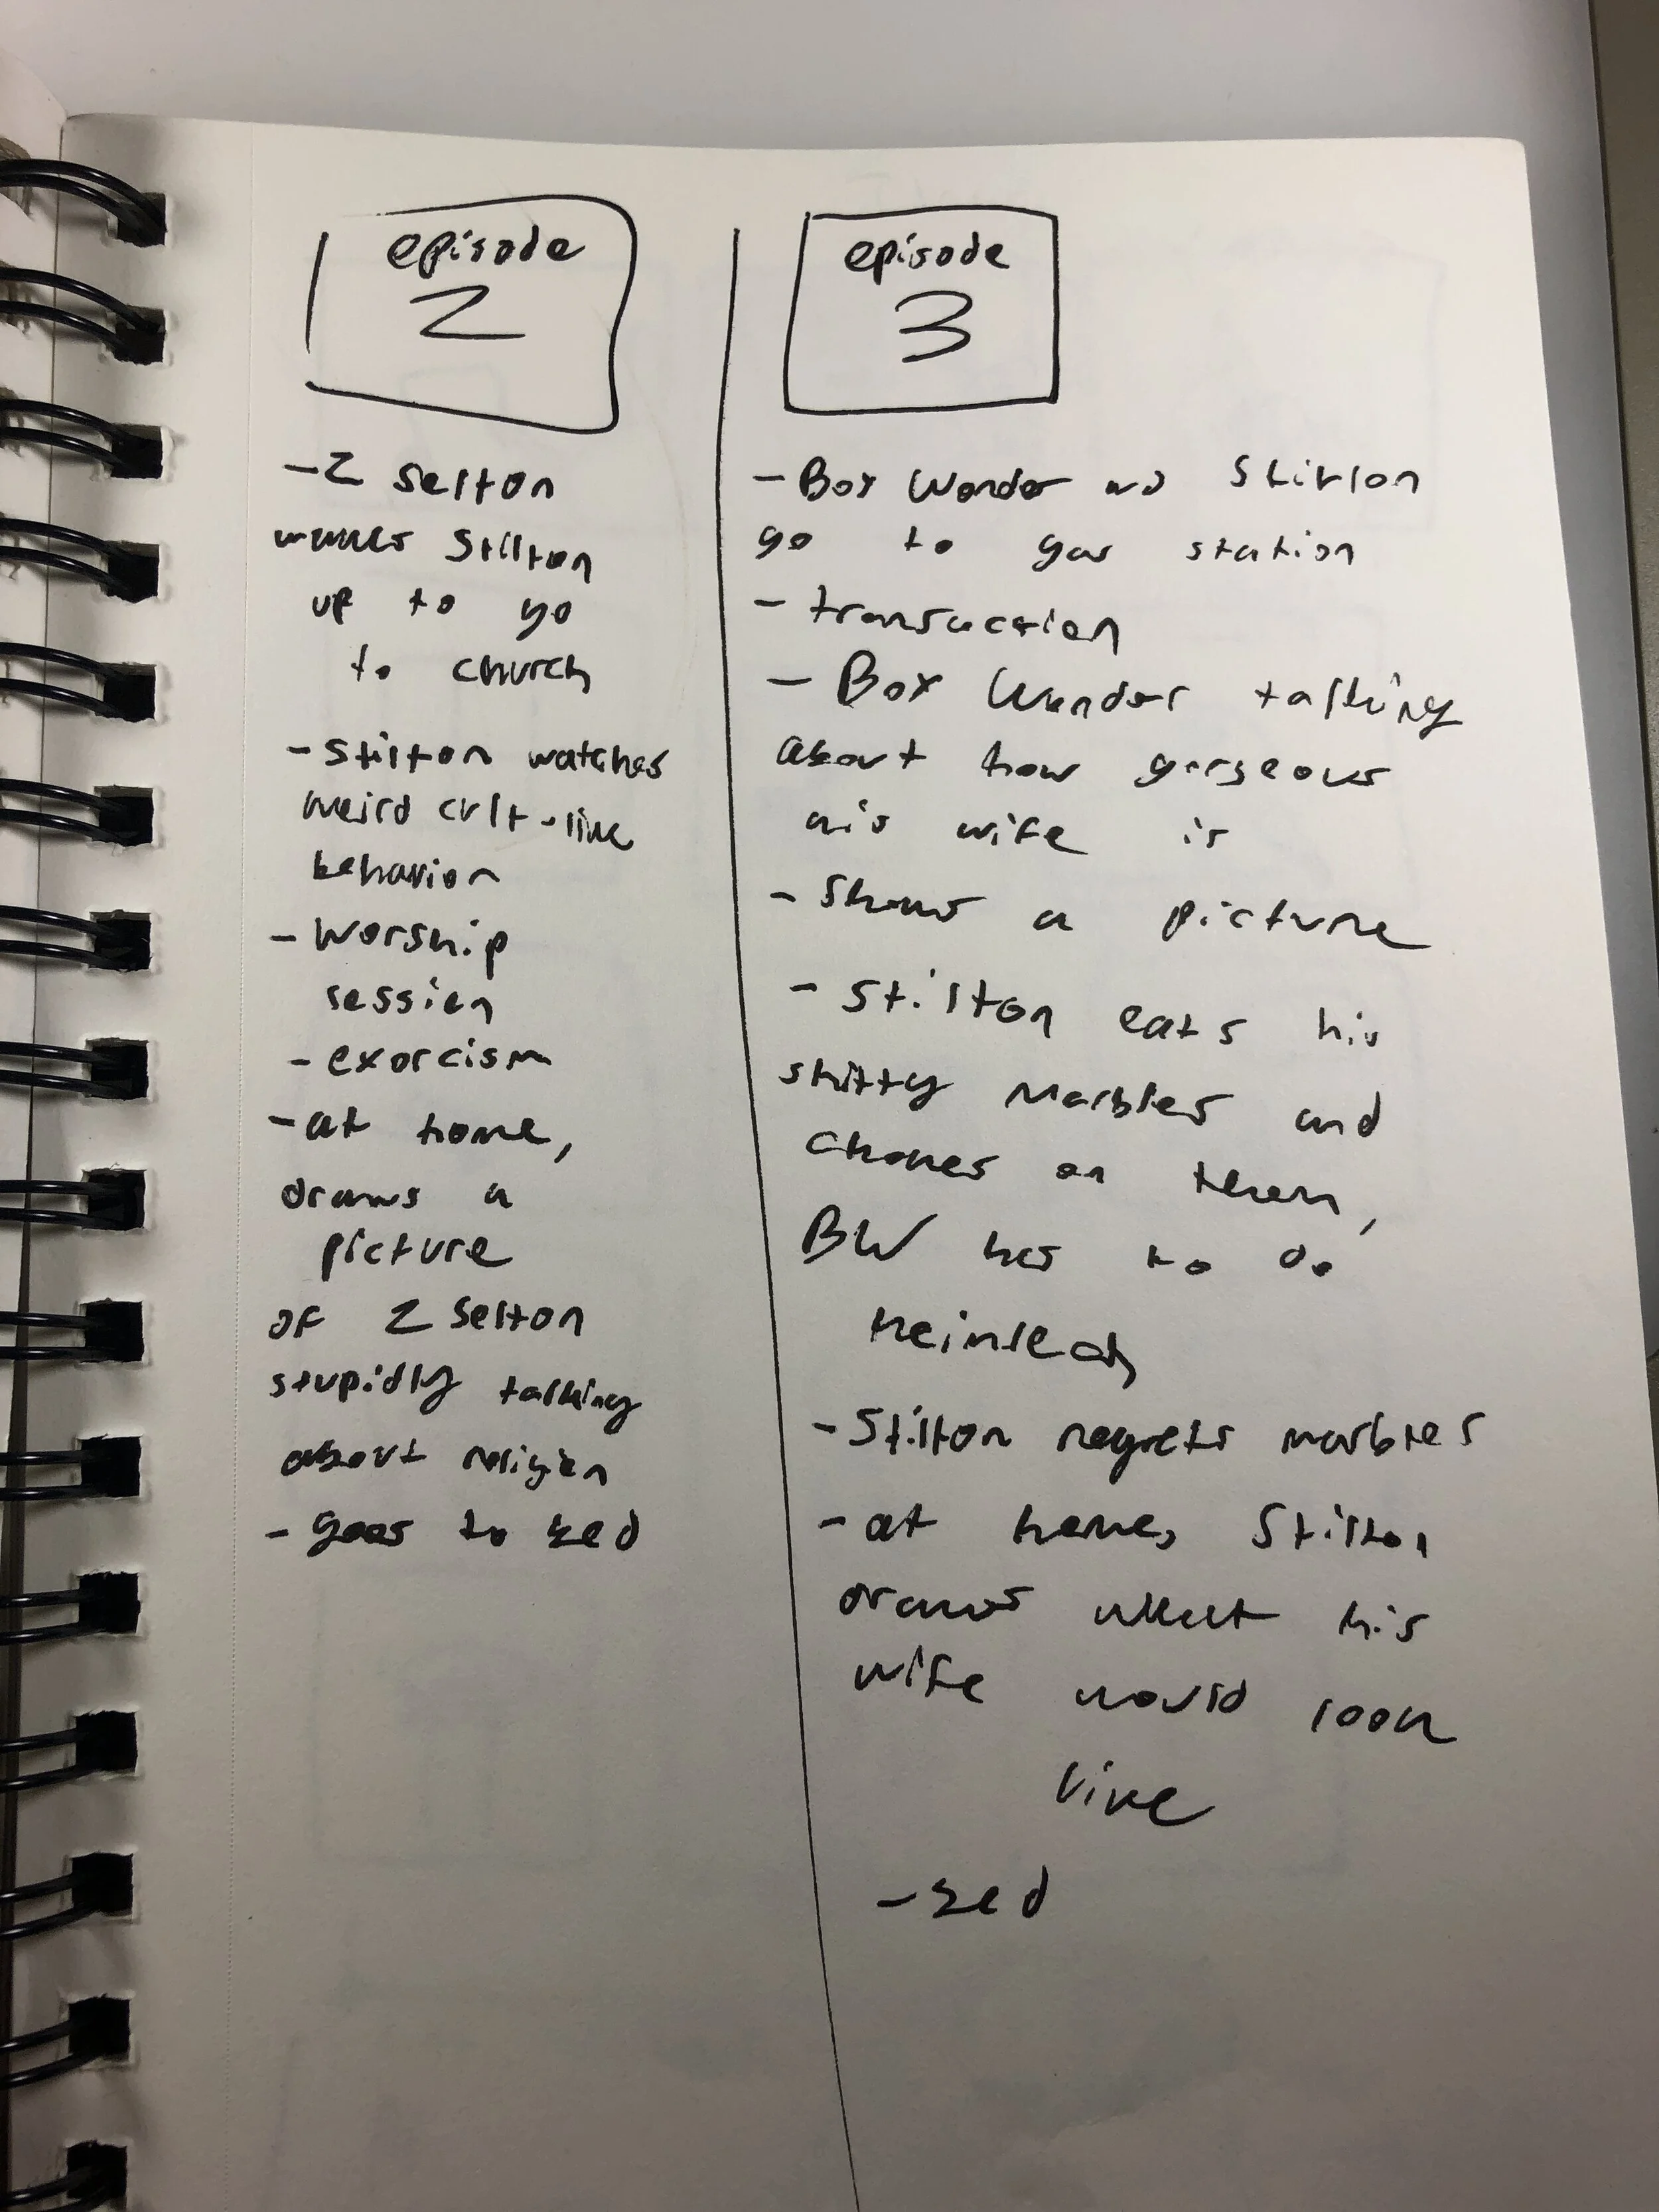 episode
2
- Z Selton
wakes Stilton
up to go
to church
- Stilton watches
weird cult-like
behavior
- worship
session
- exorcism
- at home,
draws a
picture
of Z Selton
stupidly talking
about religion
- goes to bed
episode
3
- Box Wonder and Stilton
go to gas station
- transaction
- Box Wonder talking
about how gorgeous
his wife is
- Shows a picture
- Stilton eats his
shitty Marbles and
chokes on them,
BW has to do
heimleich
- Stilton regrets marbles
- at home, Stilton
draws what his
wife would look
like
- bed